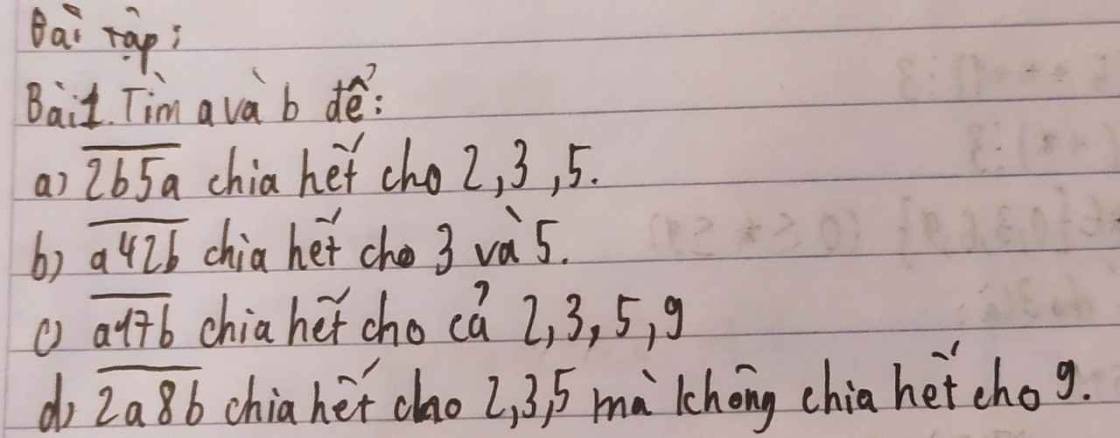 Bài tập:
Bài 1. Tìm a và b để:
a) 2b5a chia hết cho 2,3,5.
b) a42b chia hết cho 3 và 5.
c) a47b chia hết cho cả 2,3,5,9
d) 2a8b chia hết cho 2,3,5 mà không chia hết cho 9.